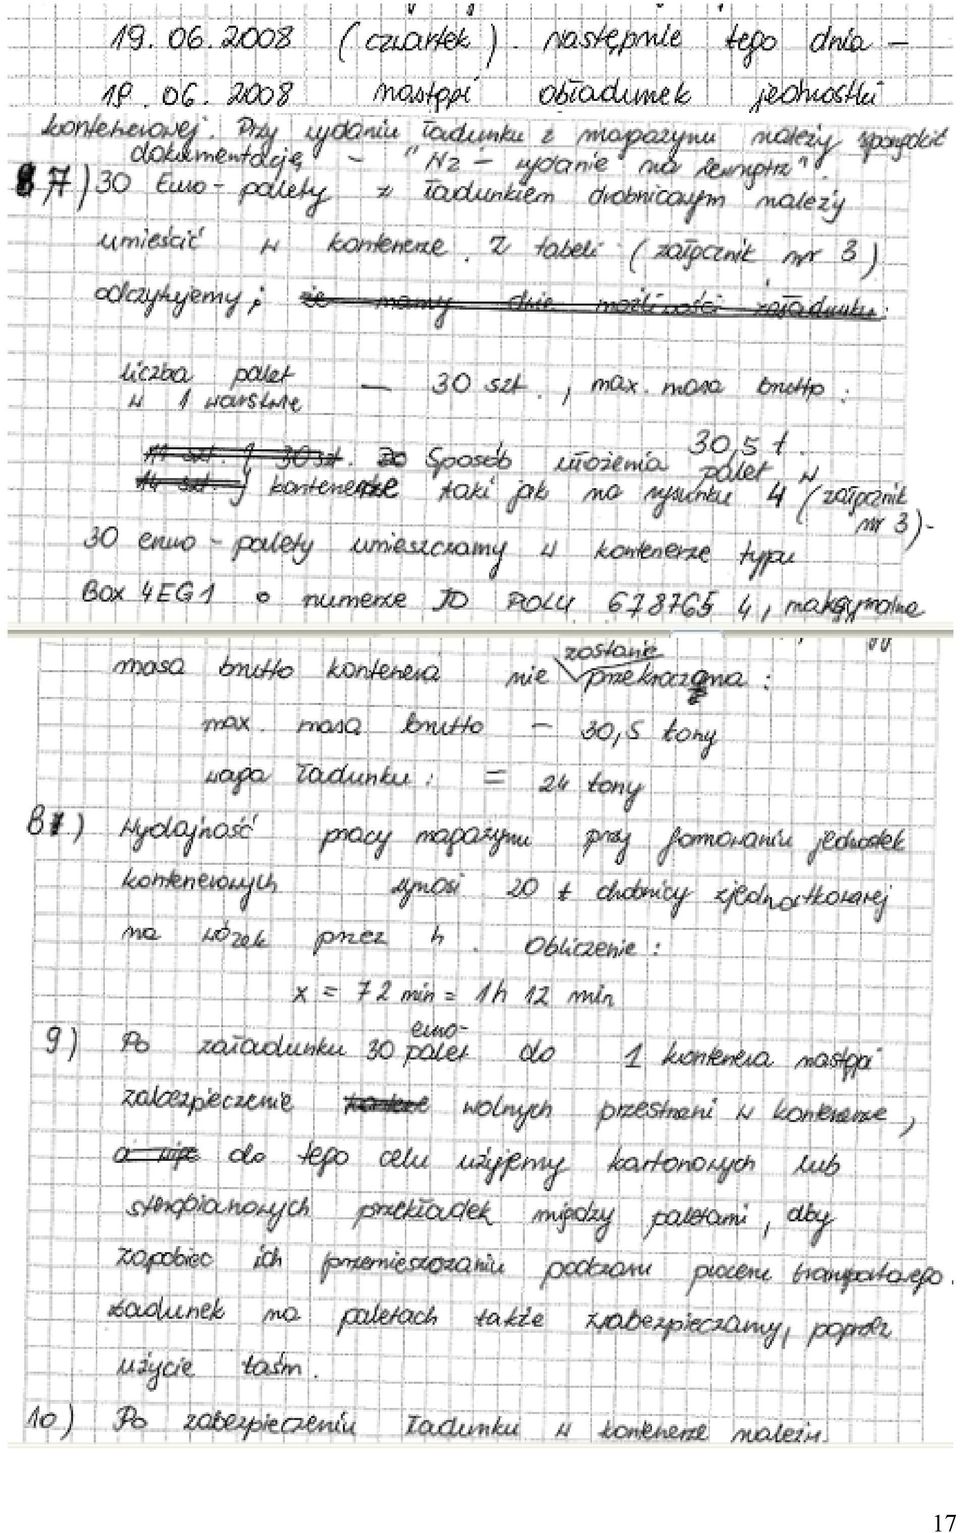 19.06.2008 (czwartek). następnie tego dnia –
19.06.2008 nastąpi obładunek jednostki
kontenerowej. Przy wydaniu ładunku z magazynu należy sporządzić
dokumentację – "Wz – wydanie na zewnątrz".
7) 30 Euro-palety z ładunkiem drobnicowym należy
umieścić w kontenerze. Z tabeli (załącznik nr 3)
odczytujemy; że mamy dwie możliwości załadunku:
liczba palet – 30 szt., max. masa brutto:
w 1 warstwie
30,5 t.
11 szt. } 30 szt. Sposób ułożenia palet w
14 szt. } kontenerze taki jak na rysunku 4 (załącznik
nr 3)-
30 euro-palety umieszczamy w kontenerze typu
Box 4EG1 o numerze JD POLU 678765 4, maksymalna
masa brutto kontenera nie zostanie przekroczona:
max. masa brutto – 30,5 tony
waga ładunku: = 24 tony
8) Wydajność pracy magazynu przy formowaniu jednostek
kontenerowych wynosi 20 t drobnicy zjednostkowanej
na wózek przez h. Obliczenie:
x = 72 min = 1h 12 min
9) Po załadunku 30 euro-palet do 1 kontenera nastąpi
zabezpieczenie wolnych przestrzeni w kontenerze,
a więc do tego celu użyjemy kartonowych lub
styropianowych przekładek między paletami, aby
zapobiec ich przemieszczaniu podczas procesu transportowego.
Ładunek na paletach także zabezpieczamy, poprzez
użycie taśm.
10) Po zabezpieczeniu ładunku w kontenerze należy
17